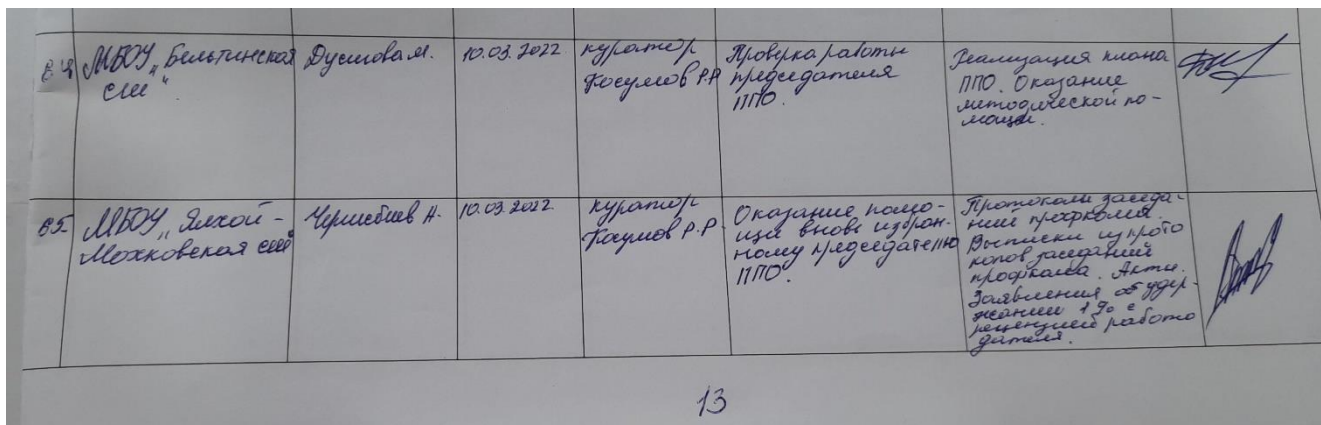 МБОУ „Бельтинская
сш".
Дусиева М.
10.03.2022
куратор
Косумов Р.Р
Проверка работы
председателя
ППО.
Реализация плана
ППО. Оказание
методической по-
мощи.
85
МБОУ „Ялхой-
Мохковская сш"
А.
10.03.2022
куратор
Косумов Р.Р
Оказание помо-
щи вновь избран-
ному председателю
ППО.
Протоколы заседа-
ний профкома.
Выписки из прото
колов заседаний
профкома. Акты.
Заявления об удер-
жании 1% с
резенцией работо
дателя.
13